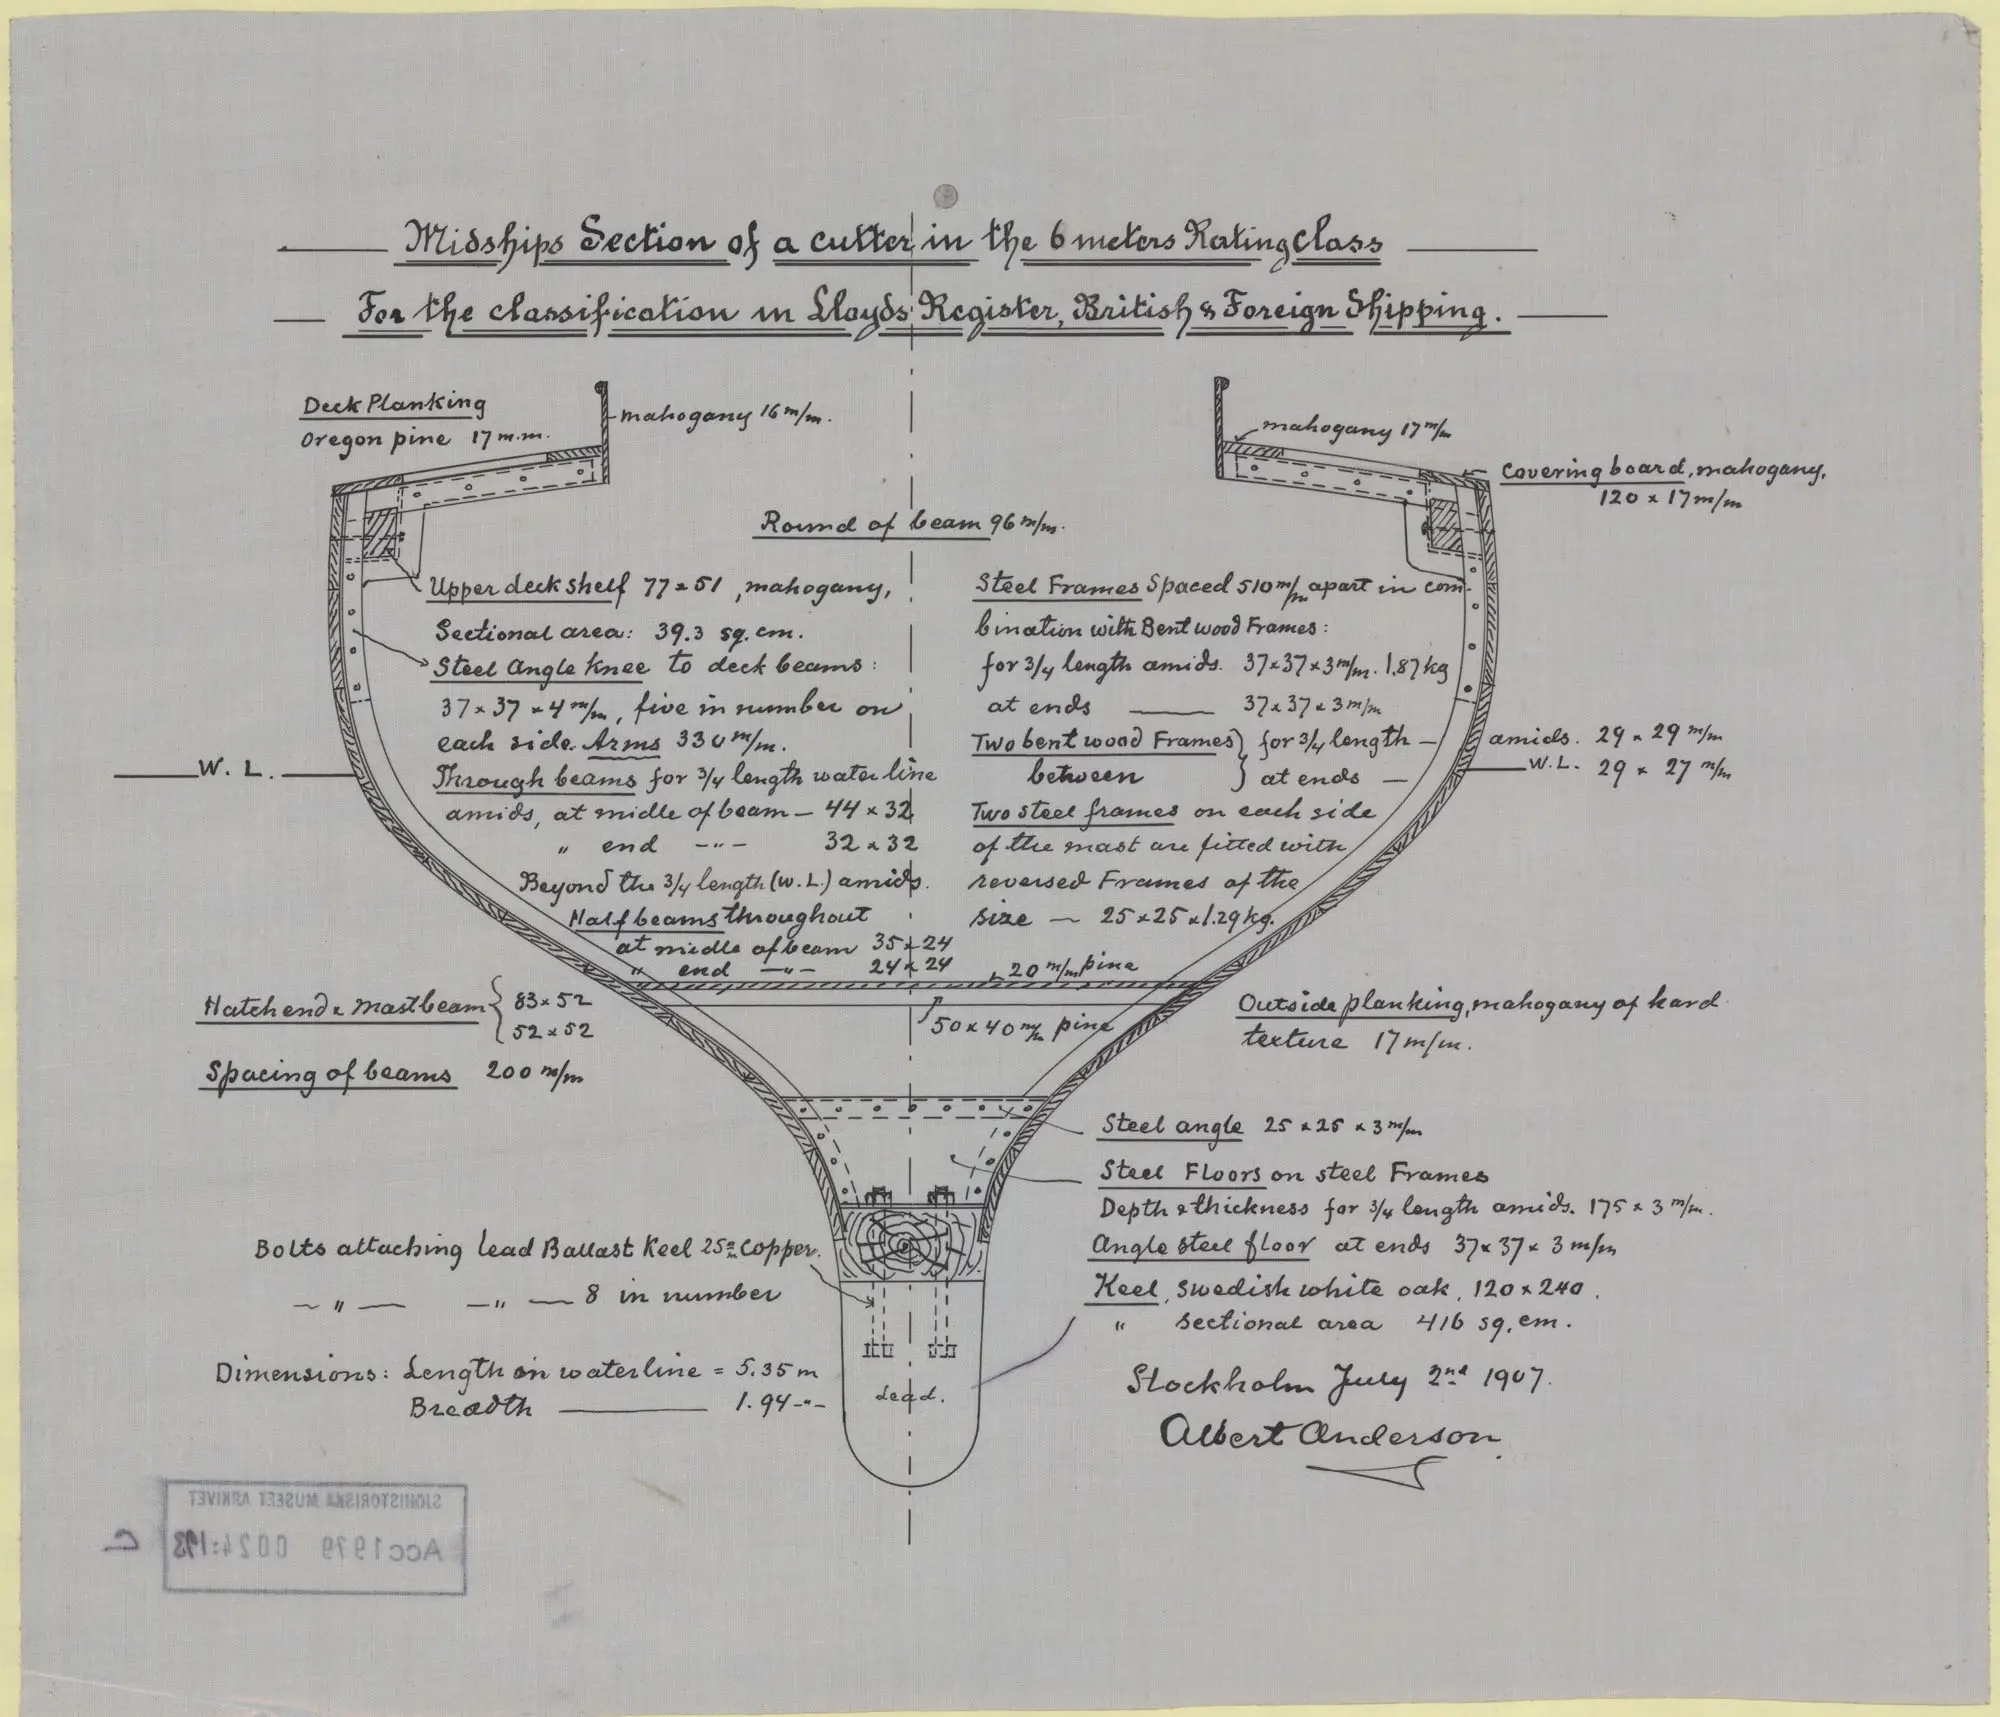 Midships Section of a cutter in the 6 meters Rating class
For the classification in Lloyds Register, British & Foreign Shipping.
Deck Planking
Oregon pine 17 m.m.
mahogany 16 m/m.
mahogany 17 m/m
Covering board, mahogany,
120 × 17 m/m
Round of beam 96 m/m.
Upper deck shelf 77 × 51, mahogany,
Sectional area: 39.3 sq. cm.
Steel Angle Knee to deck beams:
37 × 37 × 4 m/m, five in number on
each side. Arms 330 m/m.
Through beams for 3/4 length water line
amids, at middle of beam — 44 × 32
" end —"— 32 × 32
Beyond the 3/4 length (W.L.) amids.
Half beams throughout
at middle of beam 35 × 24
" end —"— 24 × 24
Steel Frames Spaced 510 m/m apart in com-
bination with Bent wood Frames:
for 3/4 length amids. 37 × 37 × 3 m/m. 1.87 kg
at ends —— 37 × 37 × 3 m/m
Two bent wood Frames } for 3/4 length — amids. 29 × 29 m/m
between } at ends — 29 × 27 m/m
W.L.
W.L.
Two steel frames on each side
of the mast are fitted with
reversed Frames of the
size — 25 × 25 × 1.29 kg.
20 m/m pine
50 × 40 m/m pine
Hatch end & mast beam { 83 × 52
52 × 52
Spacing of beams 200 m/m
Outside planking, mahogany of hard
texture 17 m/m.
Steel angle 25 × 25 × 3 m/m
Steel Floors on steel Frames
Depth & thickness for 3/4 length amids. 175 × 3 m/m.
Angle steel floor at ends 37 × 37 × 3 m/m
Keel, Swedish white oak, 120 × 240.
" sectional area 416 sq. cm.
Bolts attaching lead Ballast Keel 25 m/m Copper.
—"— —"— 8 in number
Dimensions: Length on waterline = 5.35 m
Breadth —— 1.94 —"—
Lead.
Stockholm July 2nd 1907.
Albert Anderson
SJÖHISTORISKA MUSEET ARKIVET
Acc 1979 0024:193
C